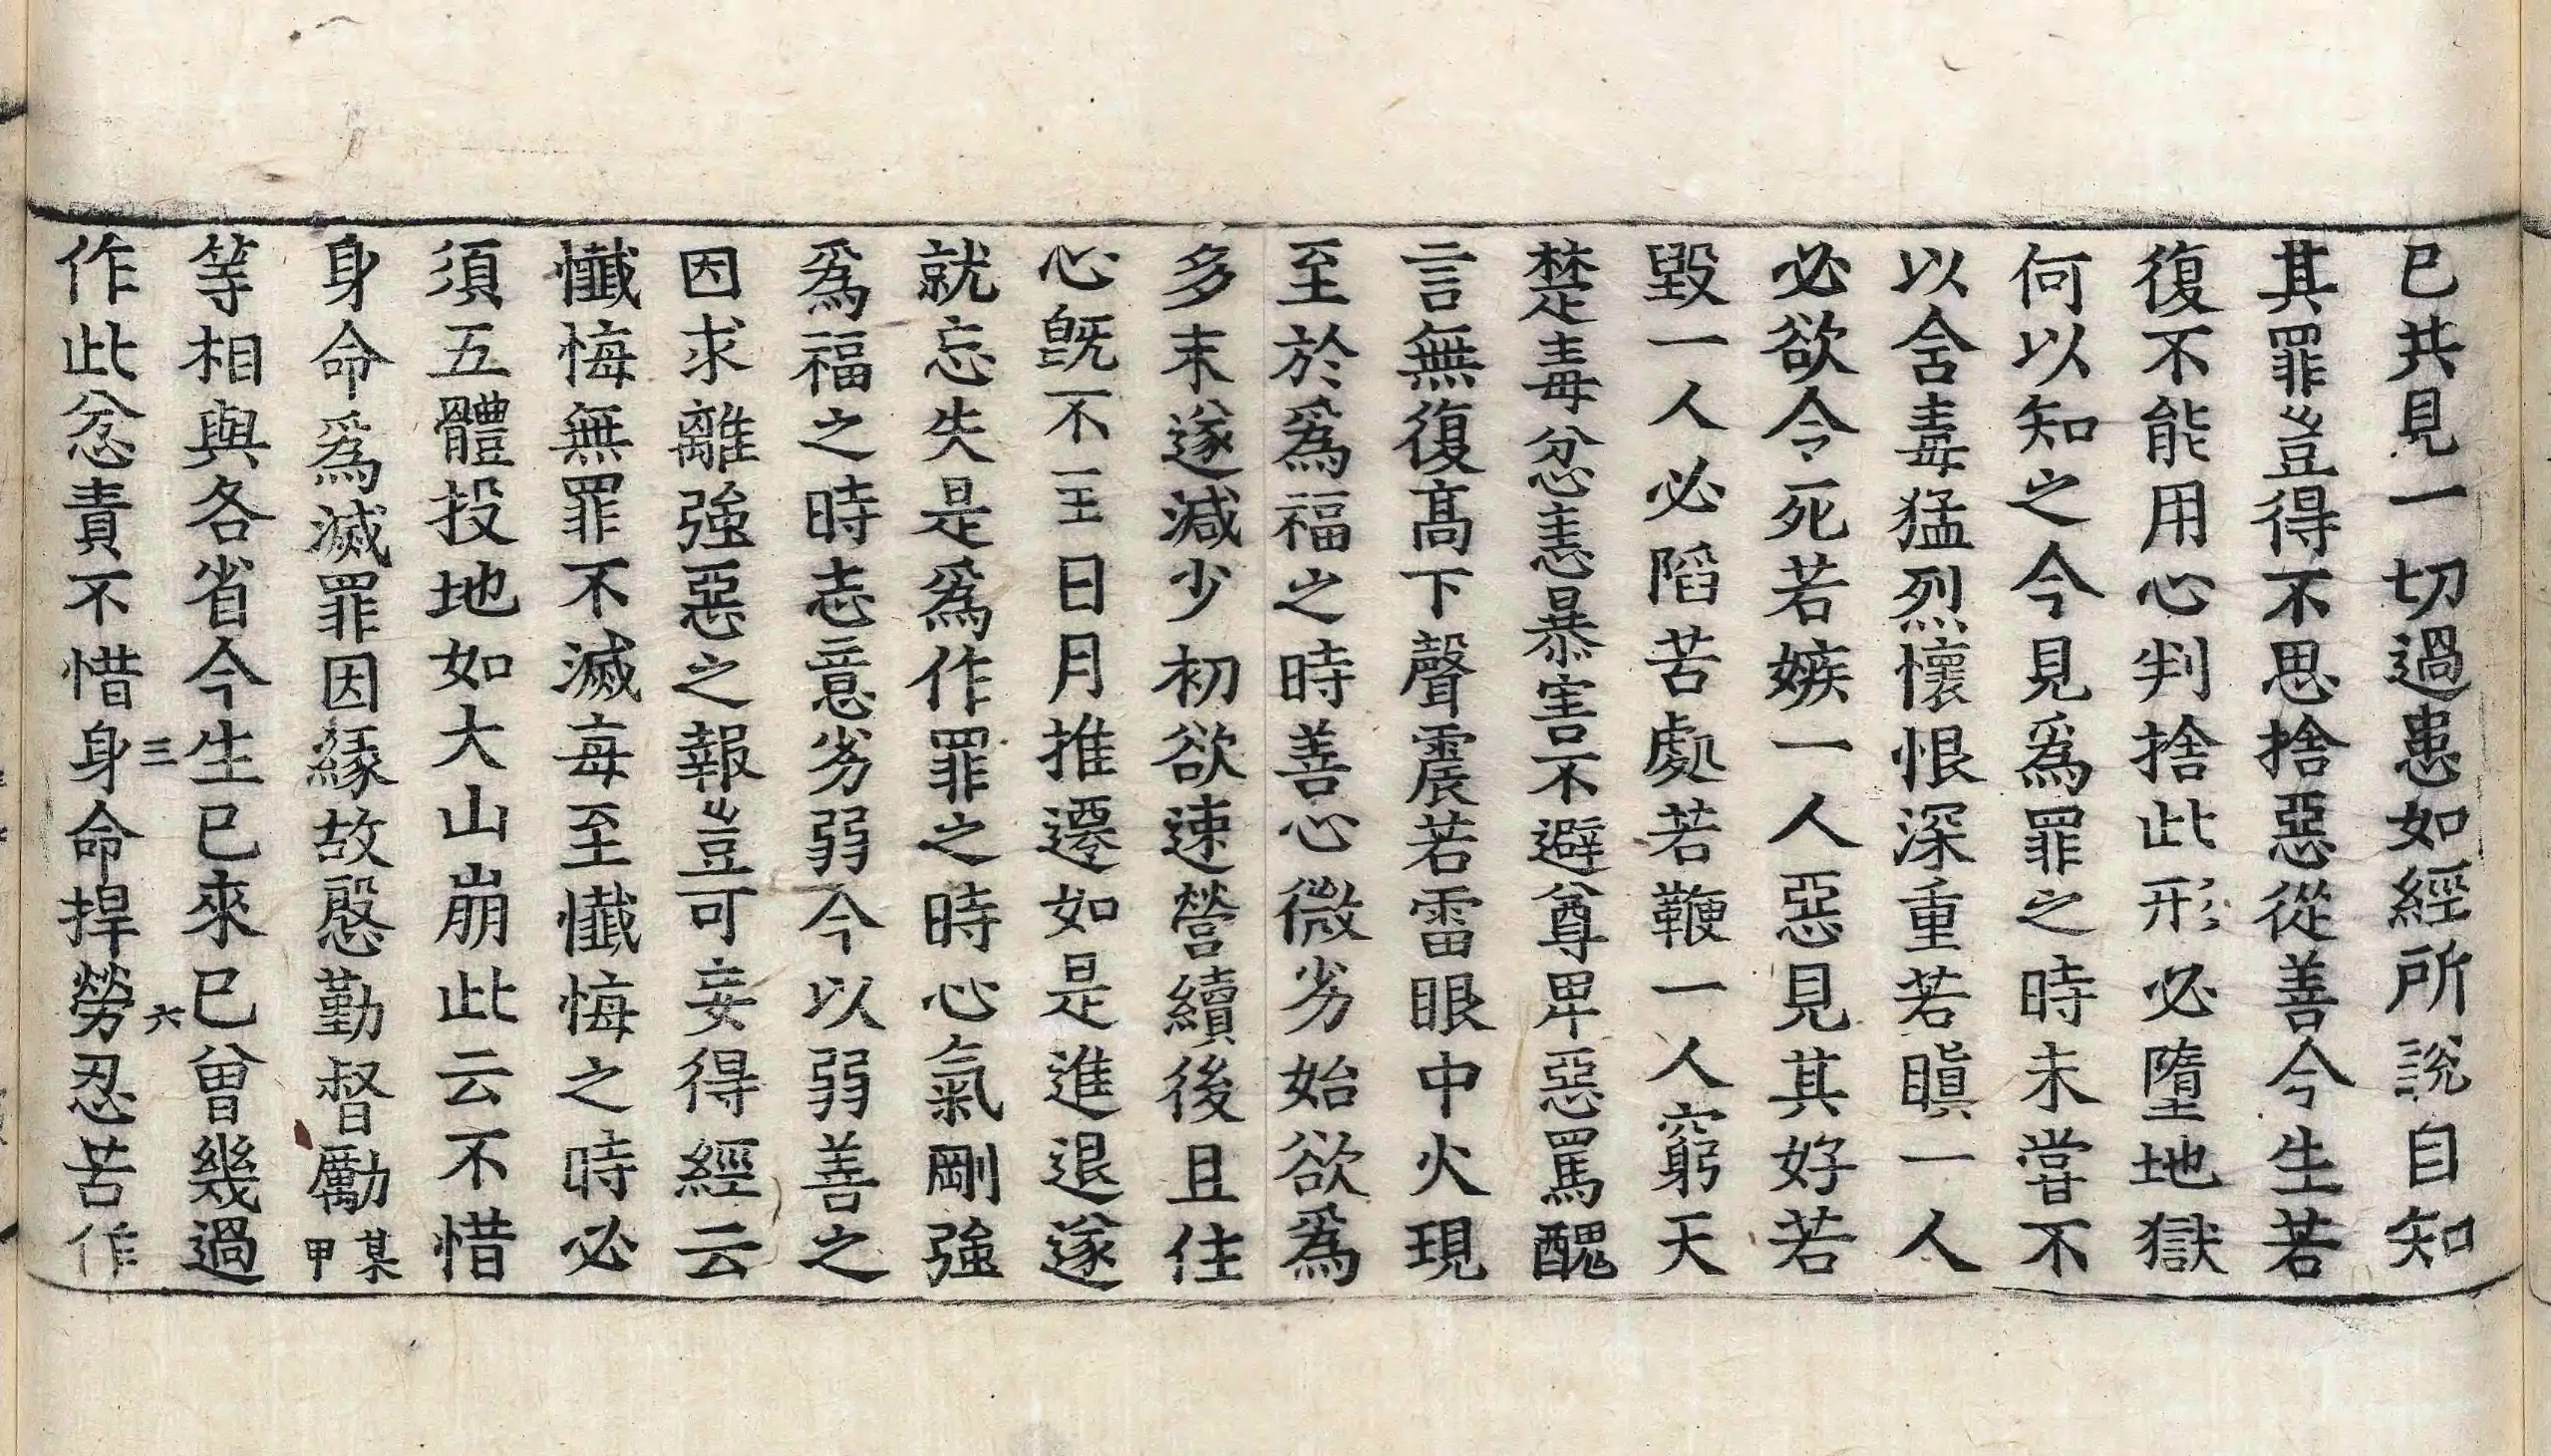 已共見一切過患如經所說自知
其罪豈得不思捨惡從善今生若
復不能用心判捨此形必墮地獄
何以知之今見爲罪之時未甞不
以含毒猛烈懷恨深重若瞋一人
必欲令死若嫉一人惡見其好若
毀一人必陷苦處若鞭一人窮天
楚毒忿恚暴害不避尊卑惡罵醜
言無復高下聲震若雷眼中火現
至於爲福之時善心微劣始欲爲
多末遂減少初欲速營續後且住
心旣不至日月推遷如是進退遂
就忘失是爲作罪之時心氣剛強
爲福之時志意劣弱今以弱善之
因求離強惡之報豈可妄得經云
懺悔無罪不滅每至懺悔之時必
須五體投地如大山崩此云不惜
身命爲滅罪因緣故慇勤督勵某甲
等相與各省今生已來已曾幾過
三 六
作此忿責不惜身命捍勞忍苦作